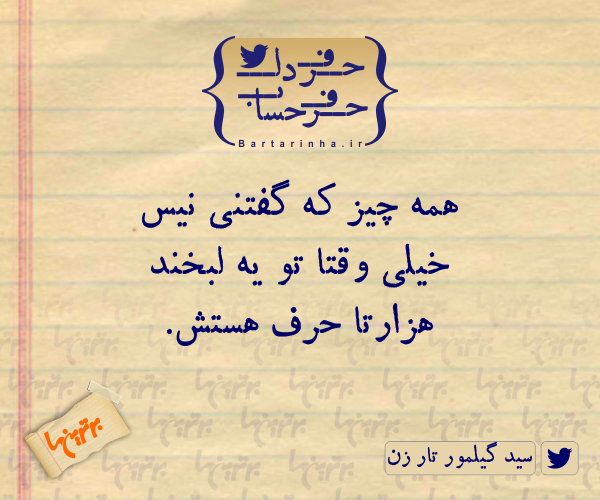 حرف دل
حرف حساب
Bartarinha.ir
همه چیز که گفتنی نیس
خیلی وقتا تو یه لبخند
هزارتا حرف هستش.
برترین‌ها
سید گیلمور تار زن